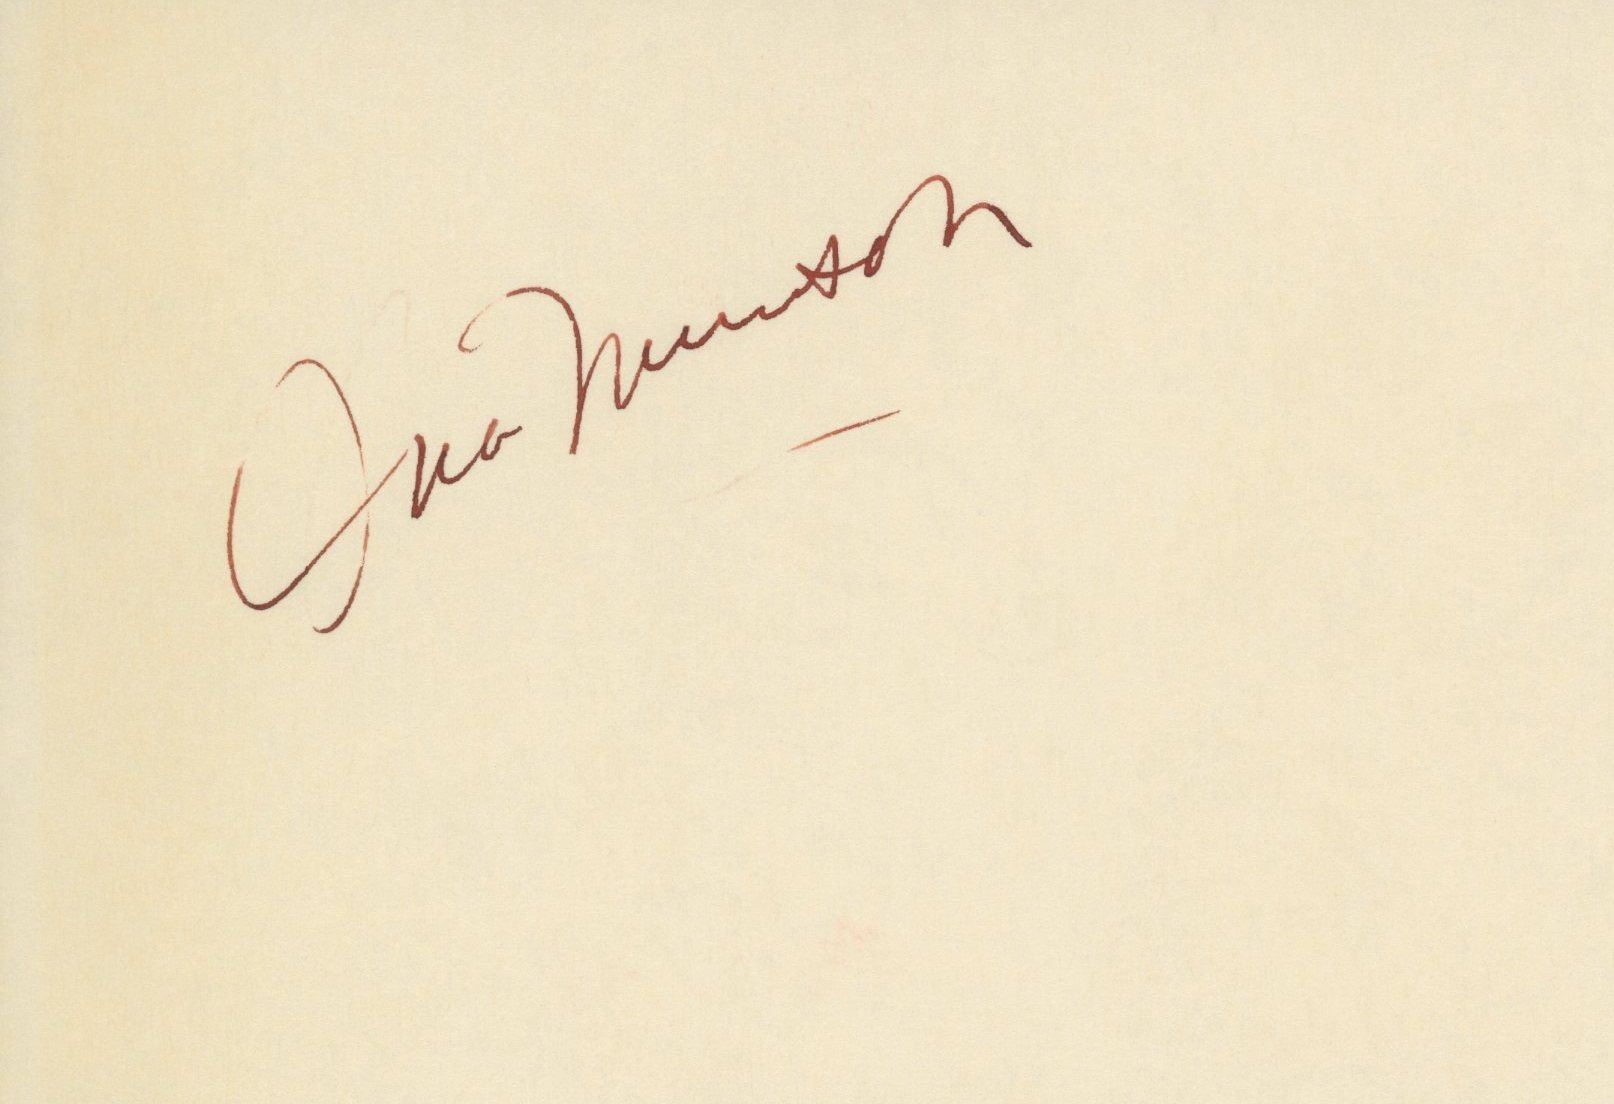 Ona Munson